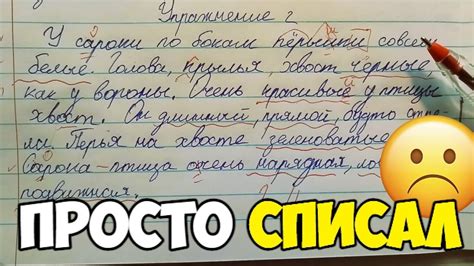 Упражнение 2
У сароки по бокам пёрышки
белые. Голова, крылья, хвост чёрные,
как у вороны. Очень красивые у птицы
хвост. Он длинный, прямой, будто стре-
ла. Перья на хвосте зеленоватые
Сарока – птица очень нарядная,
подвижная.
ПРОСТО СПИСАЛ